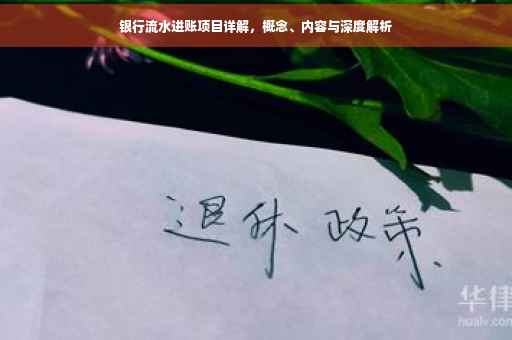 银行流水进账项目详解，概念、内容与深度解析
退休 政策
华律
hualv.com